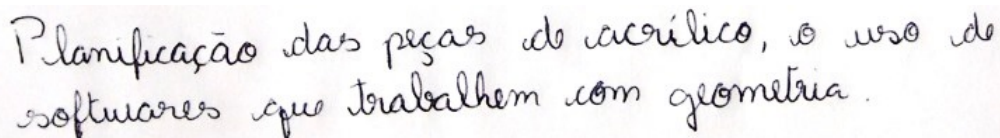 Planificação das peças de acrílico, o uso de
softwares que trabalhem com geometria.